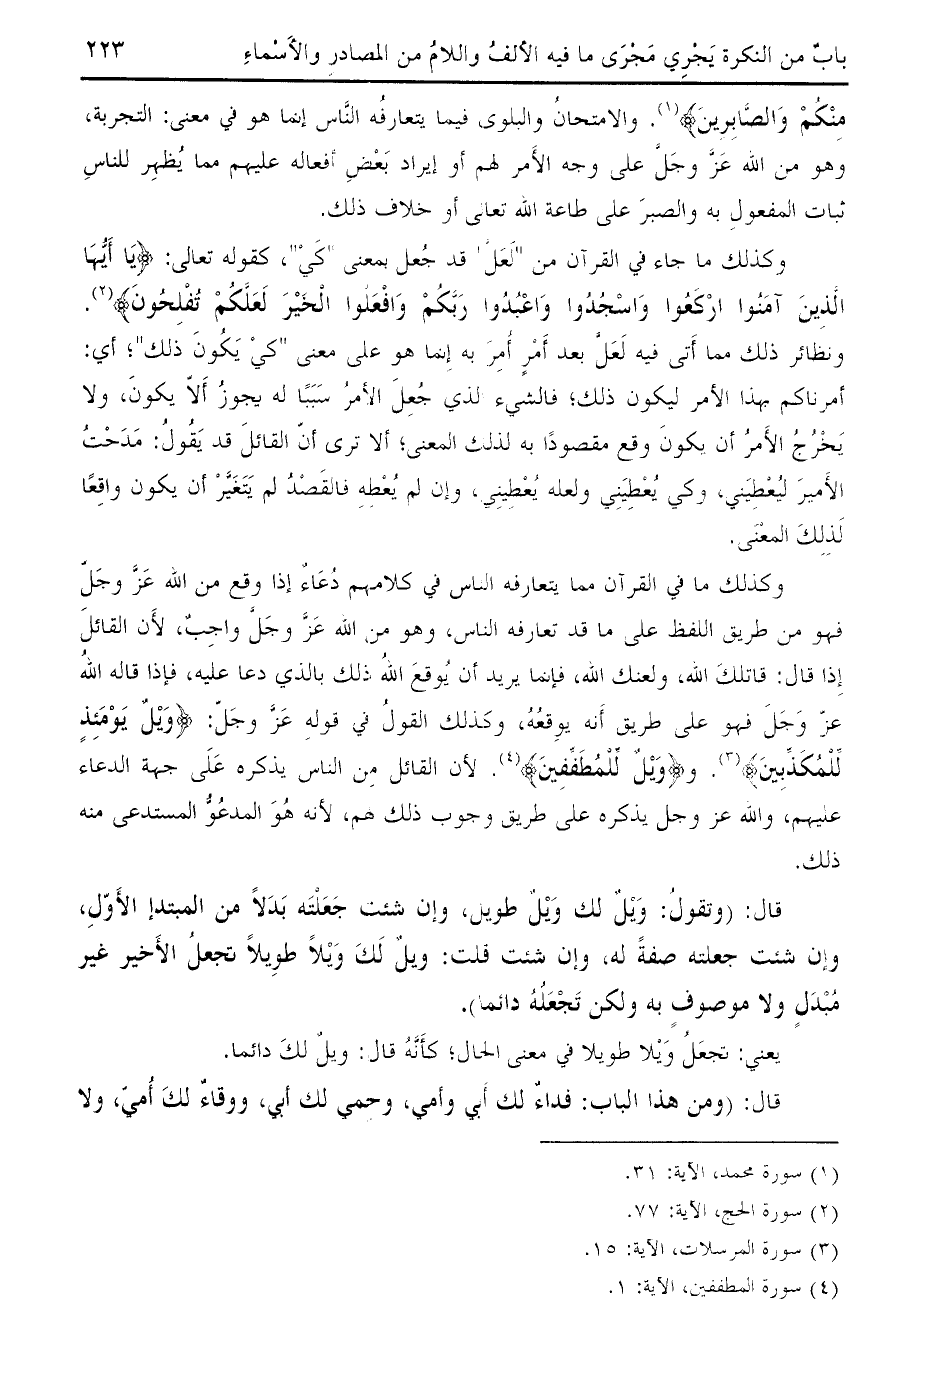 بابٌ من النكرة يَجْرِي مَجْرَى ما فيه الألفُ واللامُ من المصادرِ والأَسْماءِ ٢٢٣
مِنْكُمْ وَالصَّابِرِينَ﴾(١). والامتحانُ والبلوى فيما يتعارفُه النَّاس إنما هو في معنى: التجربة،
وهو من الله عَزَّ وجَلَّ على وجه الأَمر لهم أو إيراد بَعْضِ أفعاله عليهم مما يُظهِر للناسِ
ثبات المفعولِ به والصبرَ على طاعة الله تعالى أو خلاف ذلك.
وكذلك ما جاء في القرآن من "لَعَلَّ" قد جُعل بمعنى "كَيْ"، كقوله تعالى: ﴿يَا أَيُّهَا
الَّذِينَ آمَنُوا ارْكَعُوا وَاسْجُدُوا وَاعْبُدُوا رَبَّكُمْ وَافْعَلُوا الْخَيْرَ لَعَلَّكُمْ تُفْلِحُونَ﴾(٢).
ونظائر ذلك مما أتى فيه لَعَلَّ بعد أَمْرٍ أُمِرَ به إنما هو على معنى "كيْ يَكُونَ ذلك"؛ أي:
أمرناكم بهذا الأمر ليكون ذلك؛ فالشيء لذي جُعِلَ الأمرُ سَبَبًا له يجوزُ أَلاّ يكونَ، ولا
يَخْرُجُ الأَمرُ أن يكونَ وقع مقصودًا به لذلك المعنى؛ ألا ترى أنّ القائلَ قد يَقُولُ: مَدَحْتُ
الأميرَ ليُعْطيَني، وكي يُعْطِيَنِي ولعله يُعْطِيني، وإن لم يُعْطِهِ فالقَصْدُ لم يَتَغَيَّرْ أن يكون واقِعًا
لَذلِكَ المعْنَى.
وكذلك ما في القرآن مما يتعارفه الناس في كلامهم دُعَاءٌ إذا وقع من الله عَزَّ وجَلّ
فهو من طريق اللفظ على ما قد تعارفه الناس، وهو من الله عَزَّ وجَلَّ واجبٌ، لأن القائلَ
إذا قال: قاتلكَ الله، ولعنك الله، فإنما يريد أن يُوقعَ اللهُ ذلك بالذي دعا عليه، فإذا قاله اللهُ
عزّ وَجَلَ فهو على طريق أنه يوقعُهُ، وكذلك القولُ في قولِهِ عَزَّ وجلّ: ﴿وَيْلٌ يَوْمَئِذٍ
لِّلْمُكَذِّبِينَ﴾(٣). و﴿وَيْلٌ لِّلْمُطَفِّفِينَ﴾(٤). لأن القائل مِن الناس يذكره عَلَى جهة الدعاء
عليهم، والله عز وجل يذكره على طريق وجوب ذلك لهم، لأنه هُوَ المدعُوُّ المستدعى منه
ذلك.
قال: (وتقولُ: وَيْلٌ لك وَيْلٌ طويل، وإن شئت جَعَلْتَه بَدَلاً من المبتدإ الأَوّلِ،
وإن شئت جعلته صفةً له، وإن شئت قلت: ويلٌ لَكَ وَيْلاً طويلاً تجعلُ الأَخير غير
مُبْدَلٍ ولا موصوفٍ به ولكن تَجْعَلُهُ دائما).
يعني: تجعَلُ وَيْلا طويلا في معنى الحال؛ كأَنَّهُ قال: ويلٌ لكَ دائما.
قال: (ومن هذا الباب: فداءٌ لك أبي وأمي، وحمي لك أبي، ووقاءٌ لكَ أُميّ، ولا
(١) سورة محمد، الآية: ٣١.
(٢) سورة الحج، الآية: ٧٧.
(٣) سورة المرسلات، الآية: ١٥.
(٤) سورة المطففين، الآية: ١.